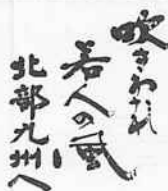 吹きあれ
若人の風
北部九州へ